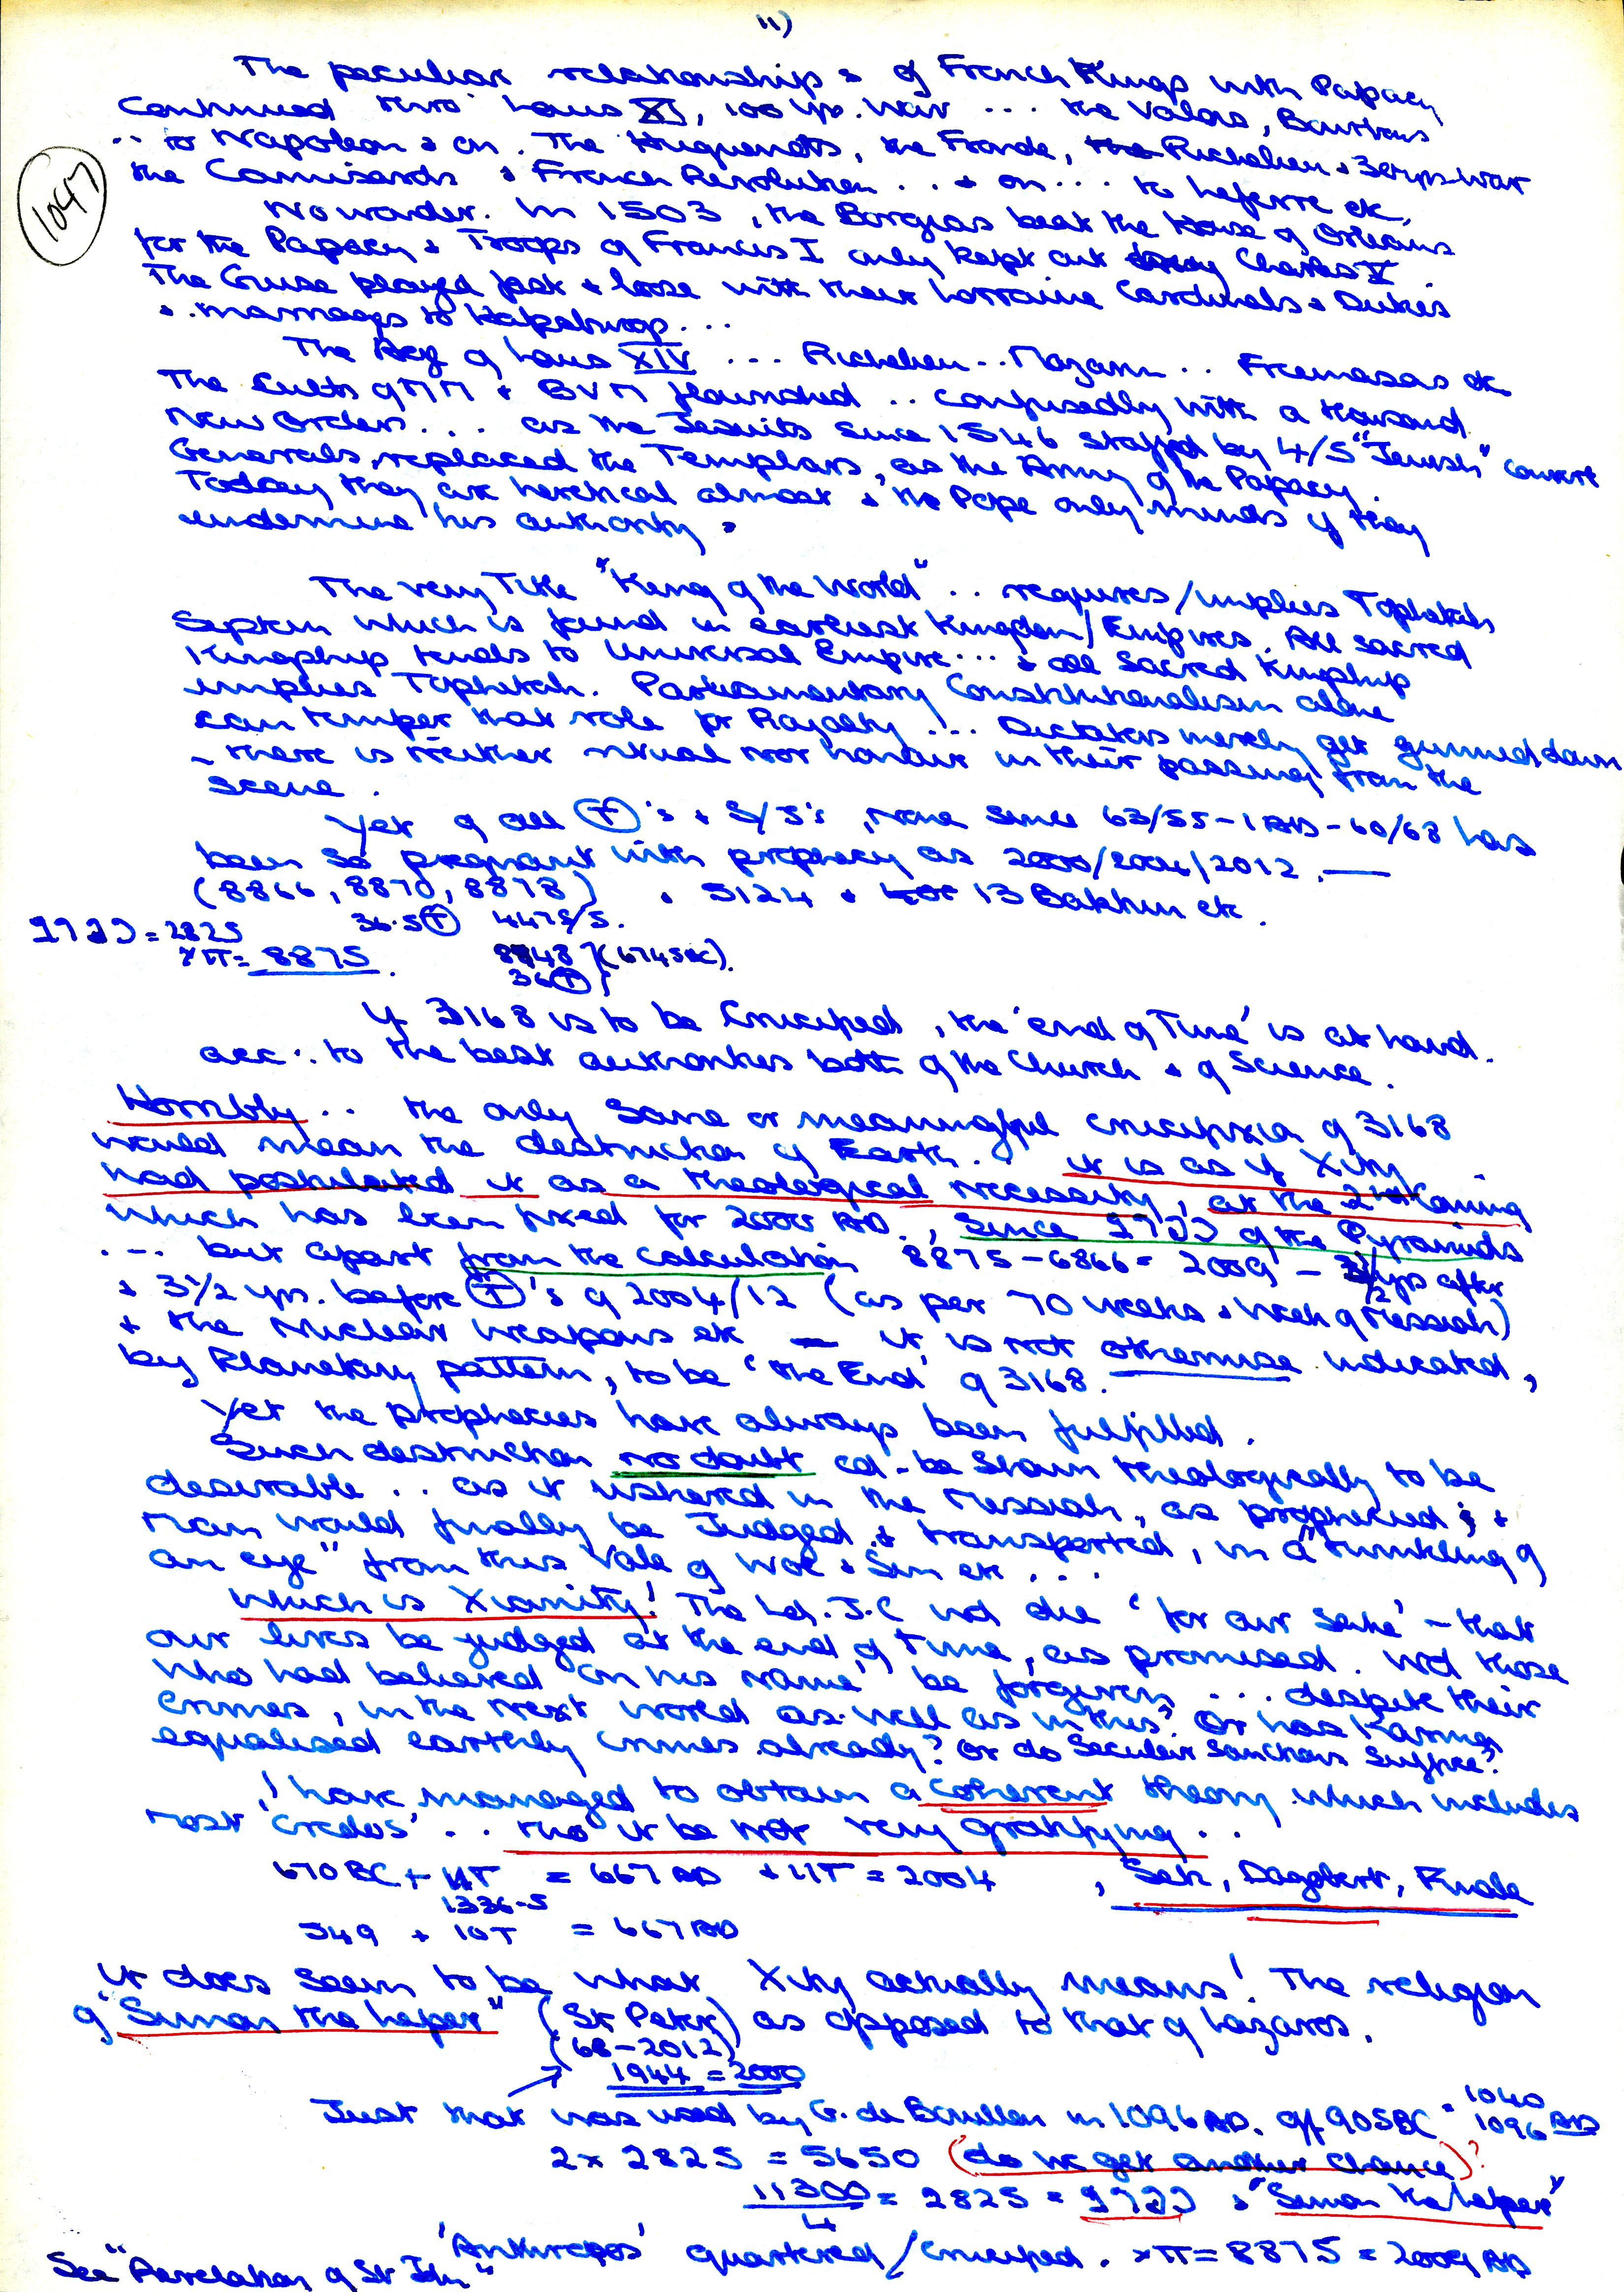 11)
The peculiar relationships of French Kings with Papacy
Continued thro' Louis XI, 100 Yr. War ... the Valois, Bourbons
.. to Napoleon & on. The Huguenots, the Fronde, the Richelieu & 30 yrs War
the Camisards & French Revolution .. & on ... to Lefevre etc.
1047
No wonder. In 1503, the Borgias beat the House of Orleans
for the Papacy & Troops of Francis I only kept out Charles V
The Guise played fast & loose with their Lorraine Cardinals & Dukes
& marriages to Hapsburgs ...
The Age of Louis XIV ... Richelieu .. Mazarin .. Freemasons etc
The Cults of MM & BVM flourished .. confusedly with a thousand
New Orders ... as the Jesuits since 1546 staffed by 4/5 "Jewish" convert
Generals, replaced the Templars, as the Army of the Papacy.
Today they are heretical almost & the Pope only minds if they
undermine his authority.
The very Title "King of the World" .. requires/implies Tophetich
System which is found in earliest Kingdom/Empires. All sacred
Kingship tends to Universal Empire ... & all Sacred Kingship
implies Tophetich. Parliamentary Constitutionalism alone
can temper that role for Royalty! .. Dictators merely get gunned down
- there is neither ritual nor honour in their passing from the
scene.
Yet of all (T)'s & S/J's, none since 63/55 - 1 AD - 60/68 has
been so pregnant with prophecy as 2000/2004/2012. —
(8866, 8870, 8878) & 5124 & 13 Baktun etc.
= 2825 36.5(T) 447 S/S.
xπ = 8875. 8748 (6745BC).
36(T)
If 3168 is to be Crucified, the 'end of Time' is at hand.
acc. to the best authorities both of the Church & of Science.
Horribly .. the only sane or meaningful crucifixion of 3168
would mean the destruction of Earth .. it is as if Xity
had postulated it as a theological necessity, at the 2nd Coming
which has been fixed for 2000 AD., since of the Pyramids
... but apart from the calculation 8875 - 6866 = 2009 - 3½ yrs after
& 3½ yrs. before (T)'s of 2004/12 (as per 70 weeks & Week of Messiah)
& the Nuclear Weapons etc — it is not otherwise indicated,
by Planetary pattern, to be 'the End' of 3168.
Yet the prophecies have always been fulfilled.
Such destruction no doubt cd. be shown theologically to be
desirable .. as it ushered in the Messiah, as prophecied; &
Man would finally be Judged & transported, in a "twinkling of
an eye" from this Vale of Woe & Sin etc ...
Which is Xianity! The Ld. J.C wd die 'for our sake' - that
our lives be judged at the end of Time, as promised. Wd those
who had believed 'in his name' be forgiven ... despite their
crimes, in the Next World as well as in this? Or has Karma
equalised earthly crimes already? Or do Secular Sanctions suffice?
I have managed to obtain a coherent theory which includes
most 'Credos' .. tho' it be not very gratifying ..
670 BC + 11T = 667 AD + 11T = 2004, Set, Dagobert, Finale
1336.5
549 + 10T = 667 AD
It does seem to be what Xity actually means! The religion
of "Simon the leper" (St Peter) as opposed to that of Lazaros.
(68 - 2012)
1944 = 2000
Just that was used by G. de Bouillon in 1096 AD. off 905BC = 1040
1096 AD
2 x 2825 = 5650 (do we get another chance)?
11300 = 2825 = & "Simon the leper"
4
'Anthropos' quartered/crucified. xπ = 8875 = 2009 AD
See "Revelation of St John"